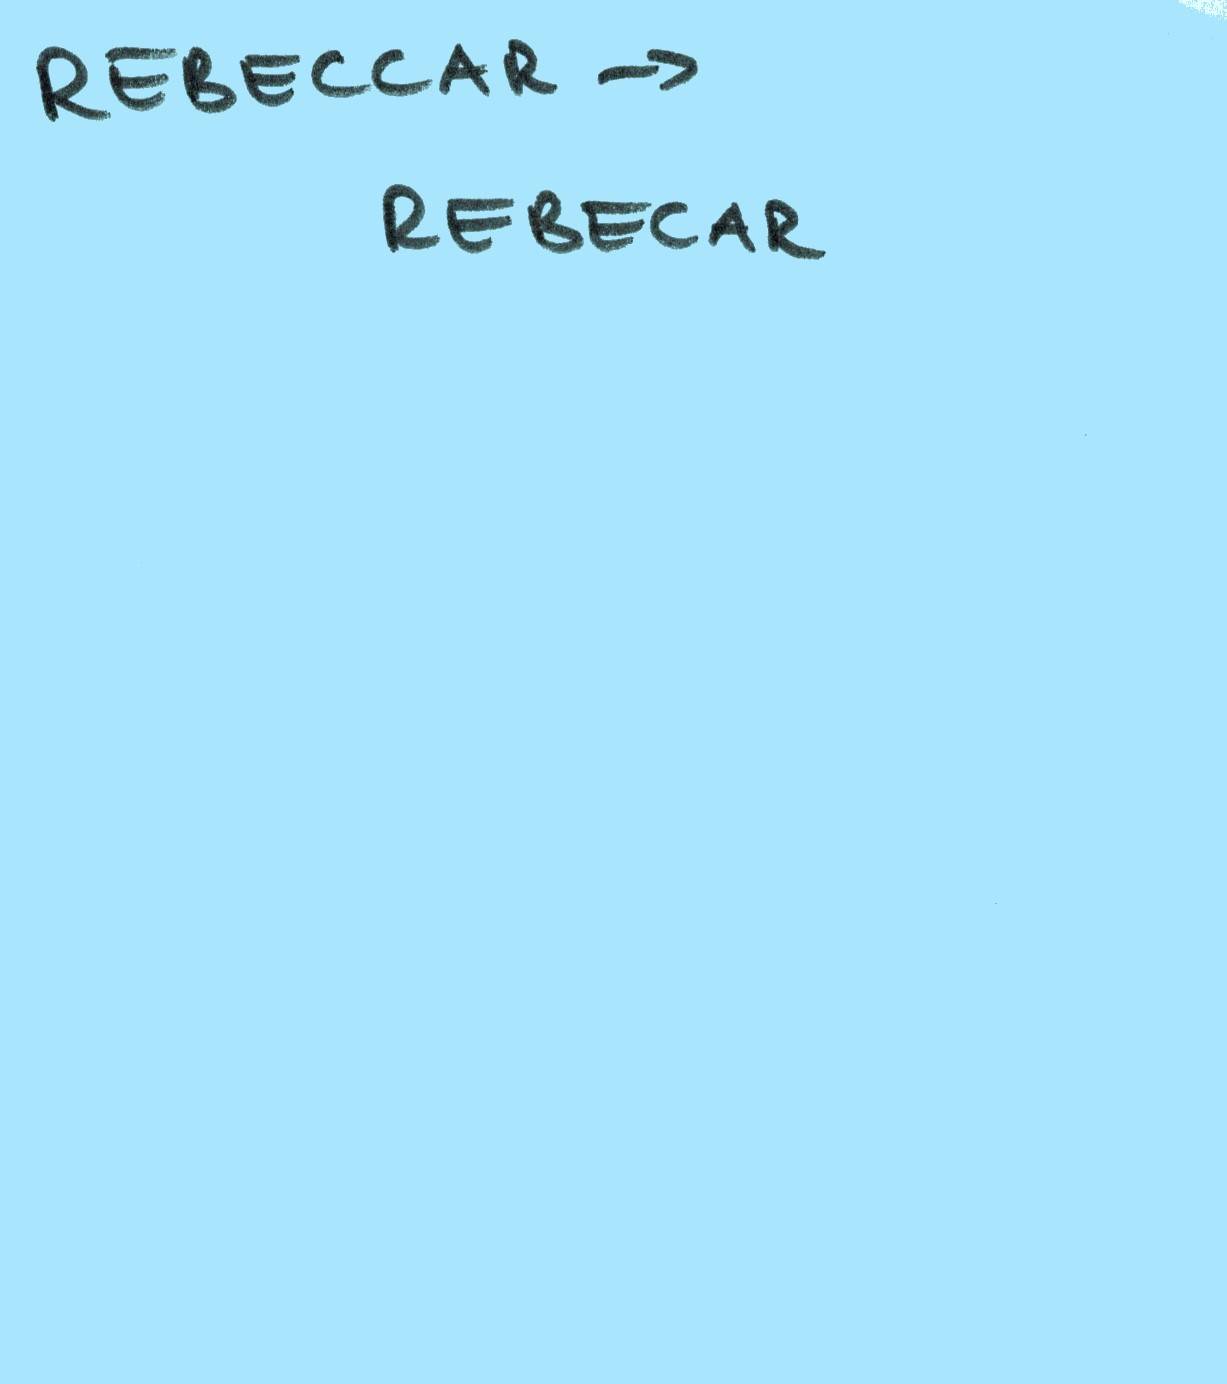 REBECCAR →
REBECAR